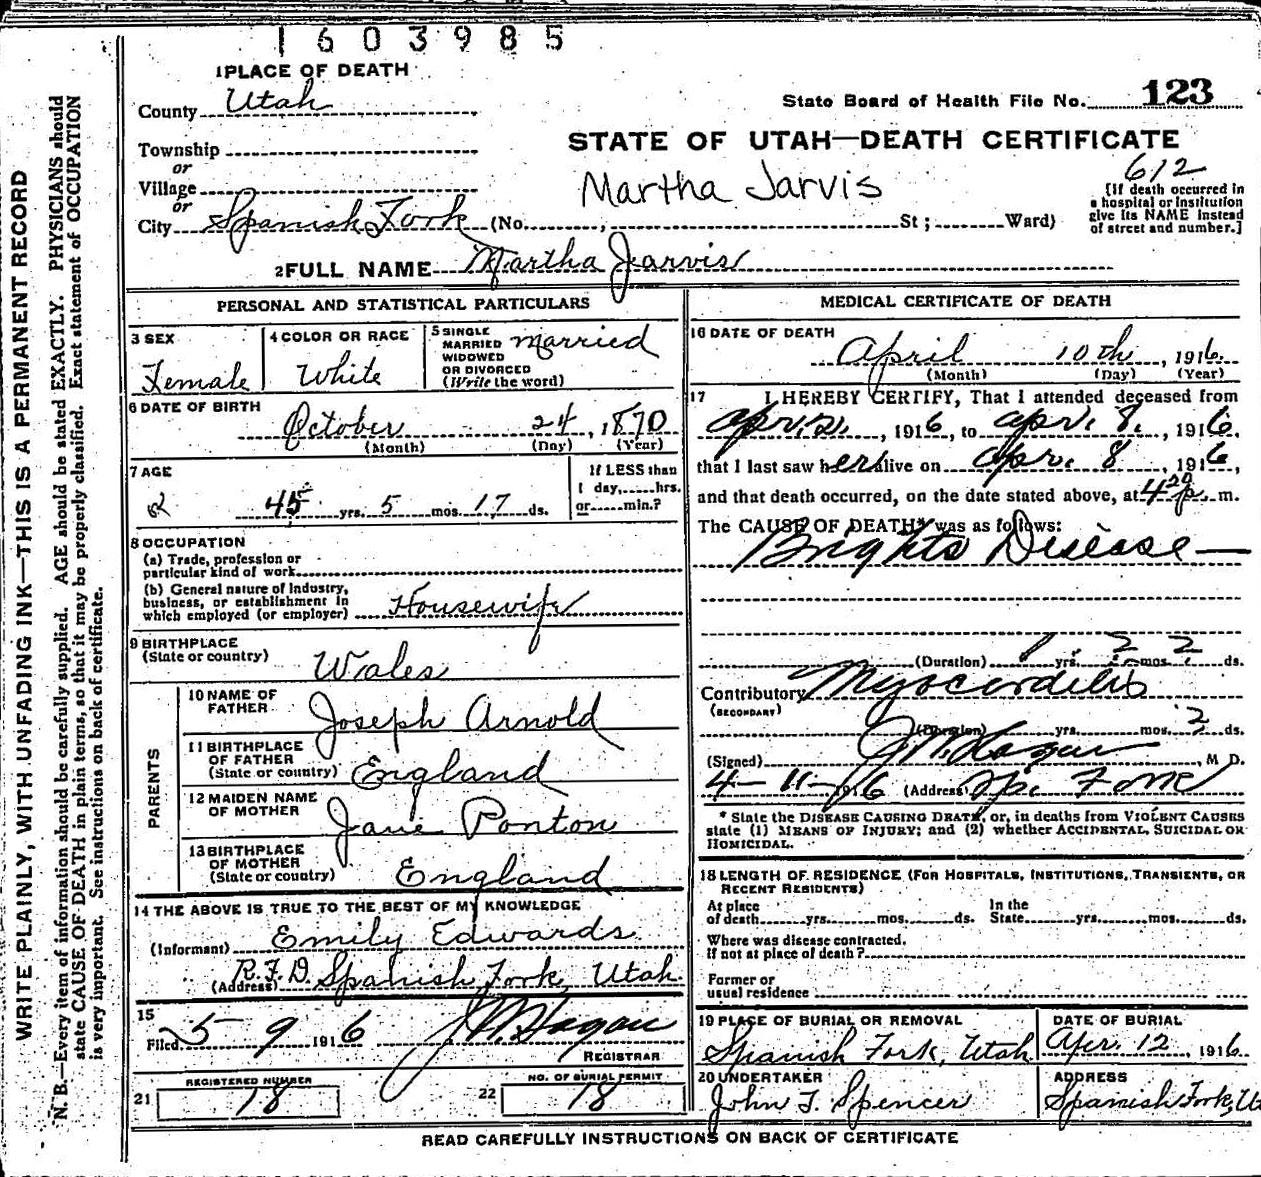 1603985
1 PLACE OF DEATH
County Utah
State Board of Health File No. 123
Township
STATE OF UTAH—DEATH CERTIFICATE
or
Village
Martha Jarvis
612
or
City Spanish Fork (No. , St; Ward)
[If death occurred in
a hospital or institution
give its NAME instead
of street and number.]
2 FULL NAME Martha Jarvis
PERSONAL AND STATISTICAL PARTICULARS
3 SEX
Female
4 COLOR OR RACE
White
5 SINGLE
MARRIED
WIDOWED
OR DIVORCED
(Write the word)
Married
6 DATE OF BIRTH
October 24, 1870
(Month) (Day) (Year)
7 AGE
45 yrs. 5 mos. 17 ds.
If LESS than
1 day, hrs.
or min.?
8 OCCUPATION
(a) Trade, profession or
particular kind of work
(b) General nature of Industry,
business, or establishment in
which employed (or employer) Housewife
9 BIRTHPLACE
(State or country) Wales
PARENTS
10 NAME OF
FATHER Joseph Arnold
11 BIRTHPLACE
OF FATHER
(State or country) England
12 MAIDEN NAME
OF MOTHER Jane Ponton
13 BIRTHPLACE
OF MOTHER
(State or country) England
14 THE ABOVE IS TRUE TO THE BEST OF MY KNOWLEDGE
(Informant) Emily Edwards
(Address) R.F.D. Spanish Fork, Utah.
15
Filed 5 9 1916 J W Hagan
REGISTRAR
21 REGISTERED NUMBER
18
22 NO. OF BURIAL PERMIT
18
MEDICAL CERTIFICATE OF DEATH
16 DATE OF DEATH
April 10th, 1916.
(Month) (Day) (Year)
17 I HEREBY CERTIFY, That I attended deceased from
, 1916, to Apr. 8, 1916,
that I last saw her alive on Apr. 8, 1916,
and that death occurred, on the date stated above, at 4 20 p. m.
The CAUSE OF DEATH* was as follows:
Brights Disease
(Duration) 1 yrs. 2 mos. 2 ds.
Contributory Myocarditis
(SECONDARY)
(Duration) yrs. mos. 2 ds.
(Signed) J W Hagan, M D.
4-11-1916 (Address) Sp. Fork
* State the DISEASE CAUSING DEATH, or, in deaths from VIOLENT CAUSES
state (1) MEANS OF INJURY; and (2) whether ACCIDENTAL, SUICIDAL OR
HOMICIDAL.
18 LENGTH OF RESIDENCE (FOR HOSPITALS, INSTITUTIONS, TRANSIENTS, OR
RECENT RESIDENTS)
At place
of death yrs. mos. ds.
In the
State yrs. mos. ds.
Where was disease contracted,
If not at place of death?
Former or
usual residence
19 PLACE OF BURIAL OR REMOVAL
Spanish Fork, Utah
DATE OF BURIAL
Apr. 12, 1916
20 UNDERTAKER
John T. Spencer
ADDRESS
Spanish Fork, Ut
READ CAREFULLY INSTRUCTIONS ON BACK OF CERTIFICATE
WRITE PLAINLY, WITH UNFADING INK—THIS IS A PERMANENT RECORD
N. B.—Every item of information should be carefully supplied. AGE should be stated EXACTLY. PHYSICIANS should
state CAUSE OF DEATH in plain terms, so that it may be properly classified. Exact statement of OCCUPATION
is very important. See instructions on back of certificate.